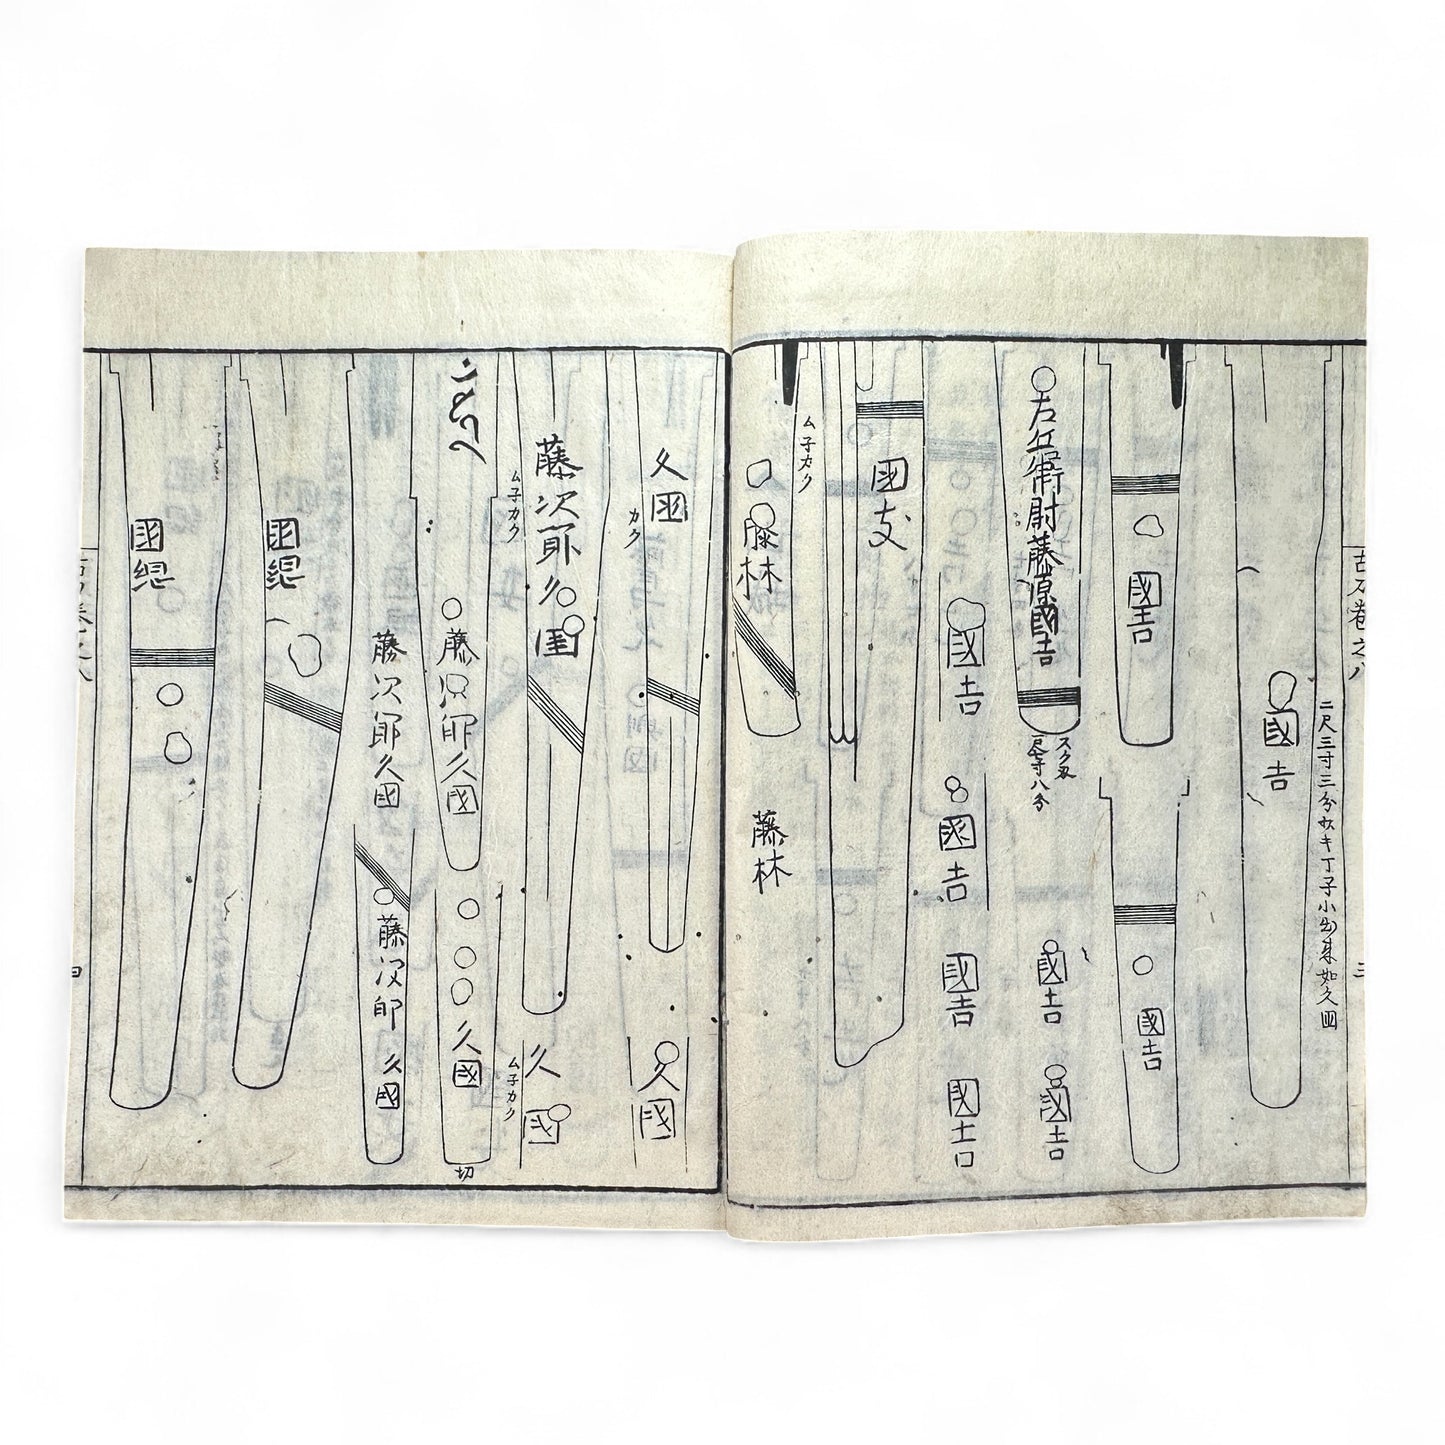 古刀巻之八
三
二尺三寸三分ヤキ丁子小出来如久国
國吉
國吉
國吉
左兵衛尉藤原國吉
スク刃
長サ八分
國吉
國吉
國吉
國吉
國吉
國吉
國友
ムネカク
藤林
藤林
久國
カク
久國
藤次郎久國
ムネカク
久國
ムネカク
藤次郎久國
久國
切
藤次郎久國
藤次郎
久國
國綱
國綱
四